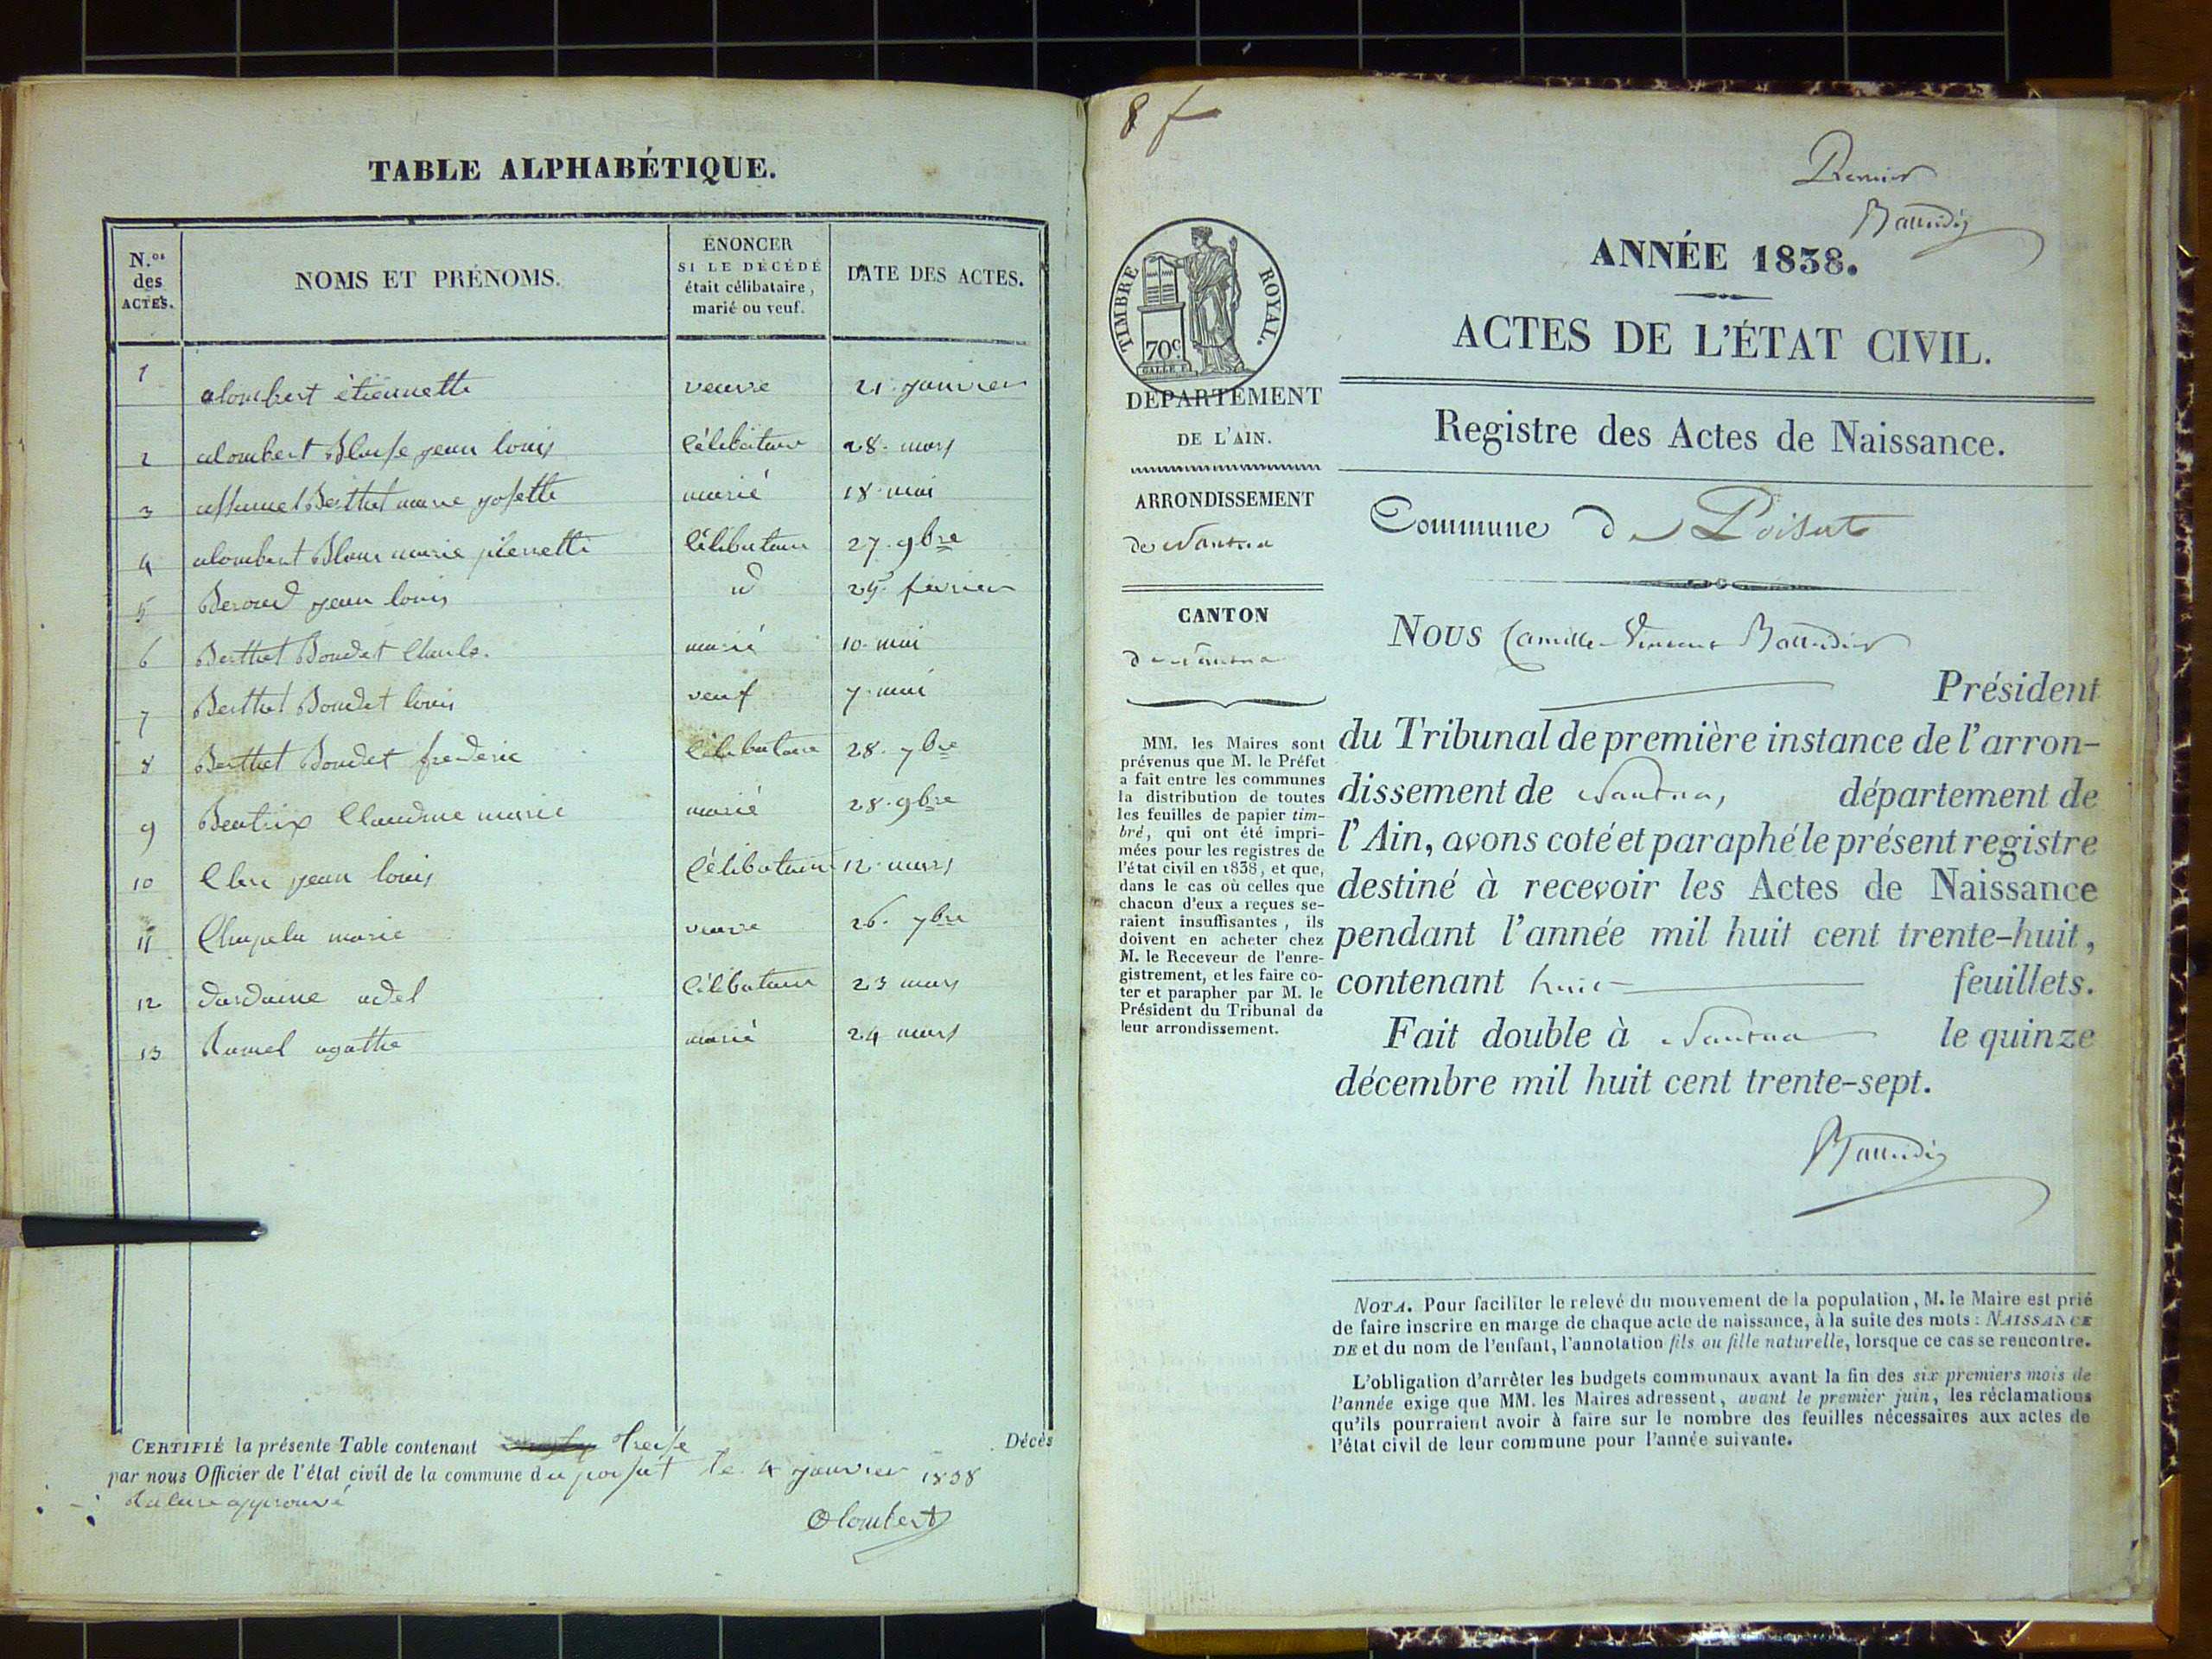 TABLE ALPHABÉTIQUE.
N.os des ACTES.
NOMS ET PRÉNOMS.
ÉNONCER SI LE DÉCÉDÉ était célibataire, marié ou veuf.
DATE DES ACTES.
1 alombert étiennette veuve 21 janvier
2 alombert Blaise jean louis Célibataire 28 mars
3 Berthet marie josette marié 18 mai
4 alombert Blanc marie pierrette Célibataire 27 9bre
5 Beroud jean louis id 25 février
6 Berthet Boudet Charle. marié 10 mai
7 Berthet Boudet louis veuf 7 mai
8 Berthet Boudet frederic Célibataire 28. 7bre
9 Beatrix Claudine marie marié 28. 9bre
10 jean louis Célibataire 12 mars
11 Chapelu marie veuve 26. 7bre
12 dardaine adel Célibataire 23 mars
13 Ramel agathe marié 24 mars
CERTIFIÉ la présente Table contenant treise Décès
par nous Officier de l'état civil de la commune de poisat le 4 janvier 1838
Rature approuvé
alombert
8 f
Premier
Baudin
TIMBRE ROYAL.
70c
ANNÉE 1838.
ACTES DE L'ÉTAT CIVIL.
DÉPARTEMENT
DE L'AIN.
ARRONDISSEMENT
de Nantua
CANTON
de Nantua
MM. les Maires sont
prévenus que M. le Préfet
a fait entre les communes
la distribution de toutes
les feuilles de papier tim-
bré, qui ont été impri-
mées pour les registres de
l'état civil en 1838, et que,
dans le cas où celles que
chacun d'eux a reçues se-
raient insuffisantes, ils
doivent en acheter chez
M. le Receveur de l'enre-
gistrement, et les faire co-
ter et parapher par M. le
Président du Tribunal de
leur arrondissement.
Registre des Actes de Naissance.
Commune de Poisat
Nous Camille Vincent
Président
du Tribunal de première instance de l'arron-
dissement de Nantua, département de
l'Ain, avons coté et paraphé le présent registre
destiné à recevoir les Actes de Naissance
pendant l'année mil huit cent trente-huit,
contenant huit feuillets.
Fait double à Nantua le quinze
décembre mil huit cent trente-sept.
NOTA. Pour faciliter le relevé du mouvement de la population, M. le Maire est prié
de faire inscrire en marge de chaque acte de naissance, à la suite des mots : NAISSANCE
DE et du nom de l'enfant, l'annotation fils ou fille naturelle, lorsque ce cas se rencontre.
L'obligation d'arrêter les budgets communaux avant la fin des six premiers mois de
l'année exige que MM. les Maires adressent, avant le premier juin, les réclamations
qu'ils pourraient avoir à faire sur le nombre des feuilles nécessaires aux actes de
l'état civil de leur commune pour l'année suivante.